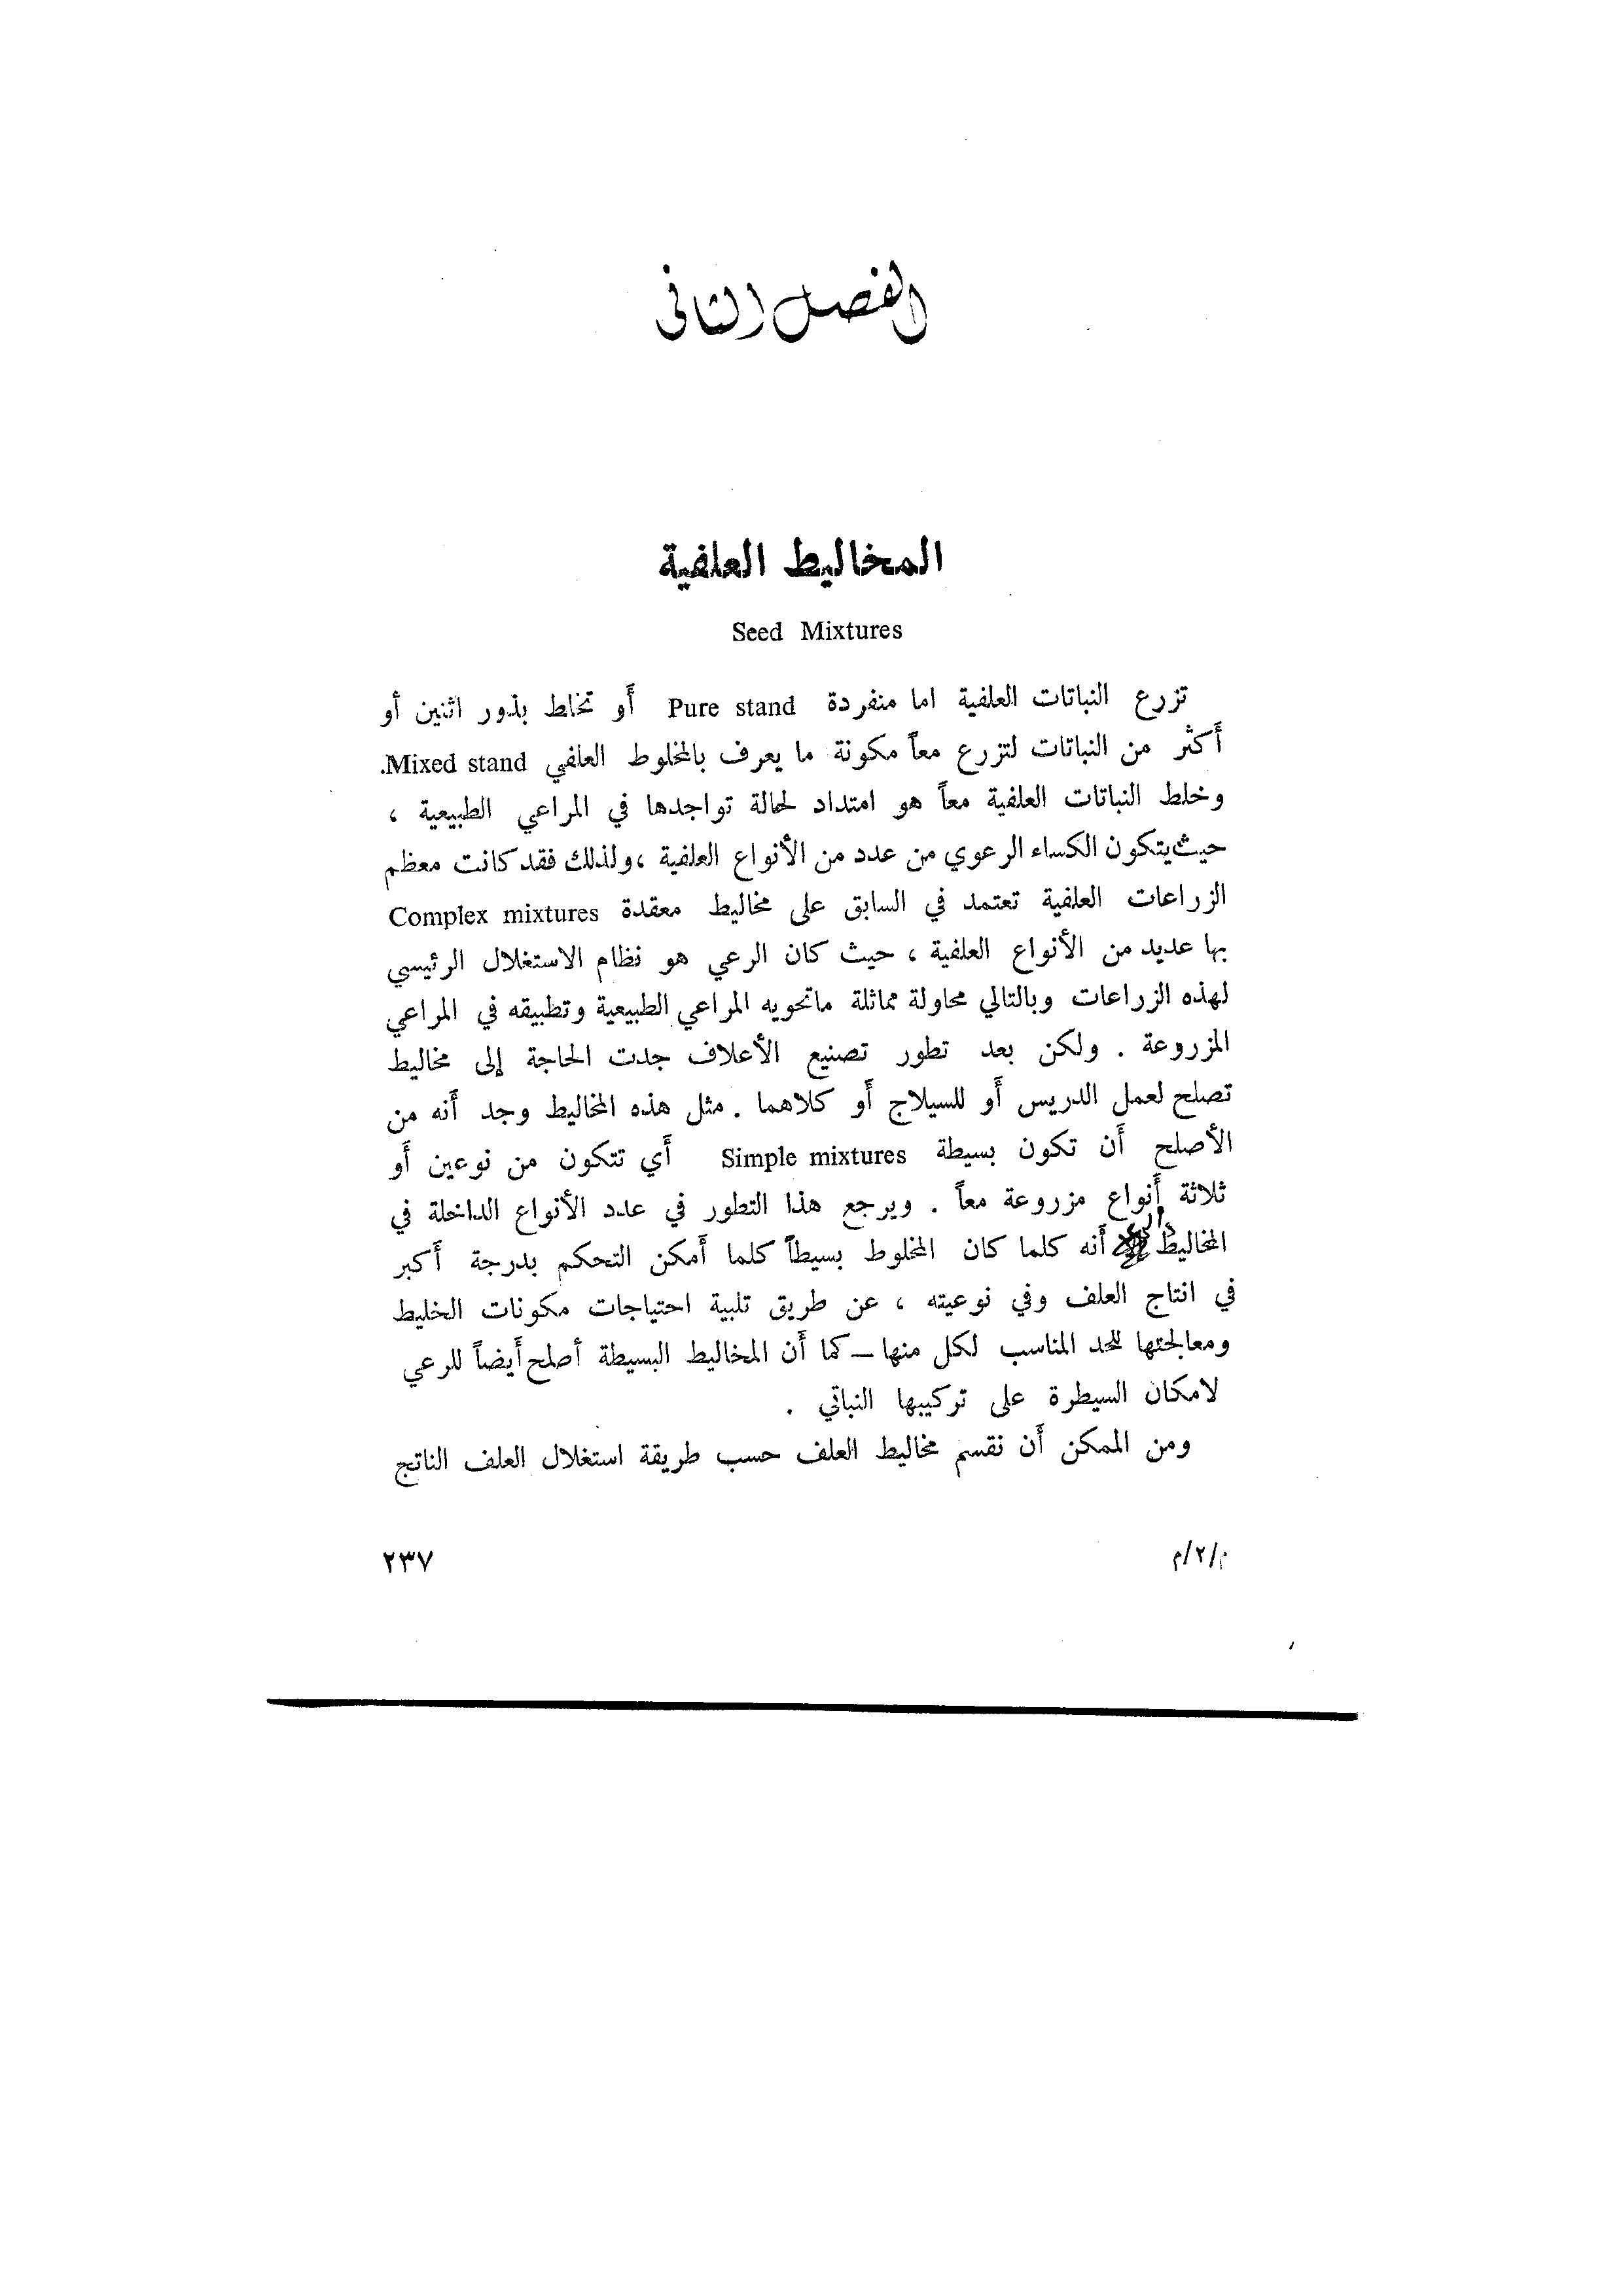 الفصل الثاني
المخاليط العلفية
Seed Mixtures
تزرع النباتات العلفية اما منفردة Pure stand أو تخلط بذور اثنين أو
أكثر من النباتات لتزرع معاً مكونة ما يعرف بالمخلوط العلفي Mixed stand.
وخلط النباتات العلفية معاً هو امتداد لحالة تواجدها في المراعي الطبيعية ،
حيث يتكون الكساء الرعوي من عدد من الأنواع العلفية ، ولذلك فقد كانت معظم
الزراعات العلفية تعتمد في السابق على مخاليط معقدة Complex mixtures
بها عديد من الأنواع العلفية ، حيث كان الرعي هو نظام الاستغلال الرئيسي
لهذه الزراعات وبالتالي محاولة مماثلة ماتحويه المراعي الطبيعية وتطبيقه في المراعي
المزروعة . ولكن بعد تطور تصنيع الأعلاف جدت الحاجة إلى مخاليط
تصلح لعمل الدريس أو للسيلاج أو كلاهما . مثل هذه المخاليط وجد أنه من
الأصلح أن تكون بسيطة Simple mixtures أي تتكون من نوعين أو
ثلاثة أنواع مزروعة معاً . ويرجع هذا التطور في عدد الأنواع الداخلة في
المخاليط أنه كلما كان المخلوط بسيطاً كلما أمكن التحكم بدرجة أكبر
في انتاج العلف وفي نوعيته ، عن طريق تلبية احتياجات مكونات الخليط
ومعالجتها للحد المناسب لكل منها – كما أن المخاليط البسيطة أصلح أيضاً للرعي
لامكان السيطرة على تركيبها النباتي .
ومن الممكن أن نقسم مخاليط العلف حسب طريقة استغلال العلف الناتج
م/٢/م
٢٣٧